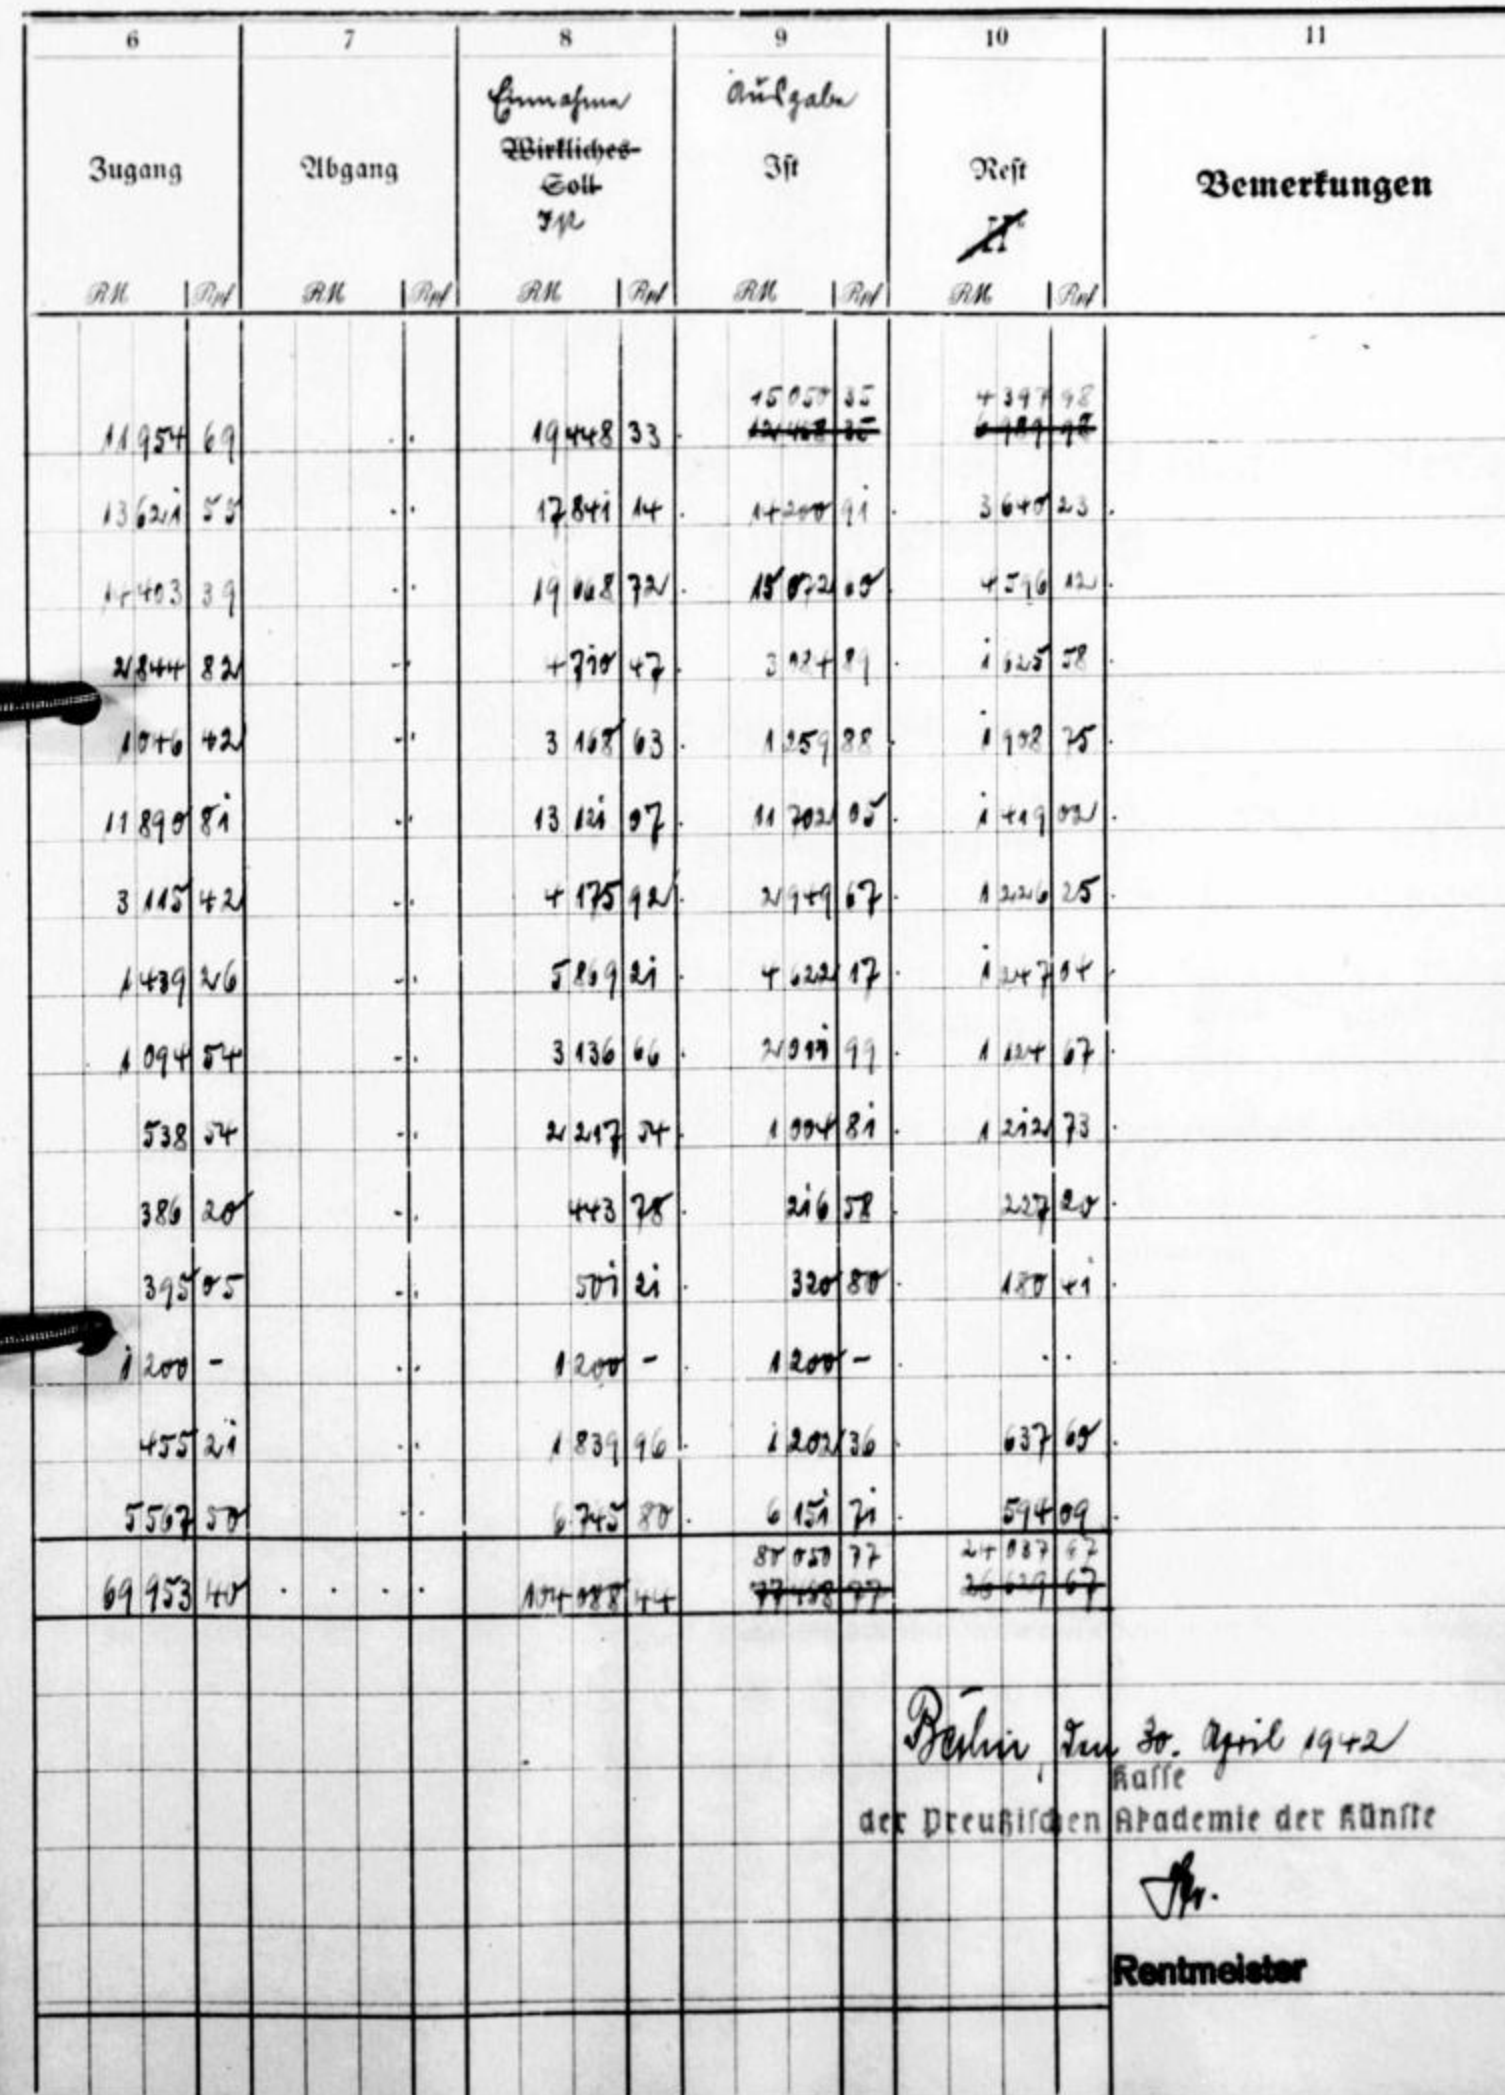 6 7 8 9 10 11
Einnahme Ausgabe
Zugang Abgang Wirkliches Ist Rest Bemerkungen
Soll
Ist
RM Rpf RM Rpf RM Rpf RM Rpf RM Rpf
15 050 35 4 397 98
11 954 69 19 448 33 12 458 35 6 989 98
13 621 55 17 841 14 14 200 91 3 640 23
14 403 39 19 668 72 15 072 60 4 596 12
2 844 82 4 710 47 3 084 89 1 625 58
1 046 42 3 168 63 1 259 88 1 908 75
11 890 81 13 121 07 11 702 05 1 419 02
3 115 42 4 175 92 2 949 67 1 226 25
1 439 26 5 869 21 4 622 17 1 247 04
1 094 54 3 136 66 2 011 99 1 124 67
538 54 2 217 54 1 004 81 1 212 73
386 20 443 78 216 58 227 20
395 05 501 21 320 80 180 41
1 200 - 1 200 - 1 200 -
455 21 1 839 96 1 202 36 637 60
5 567 50 6 745 80 6 151 71 594 09
80 050 77 24 037 67
69 953 40 104 088 44 77 458 77 26 629 67
Berlin, den 30. April 1942
Kasse
der Preußischen Akademie der Künste
Rentmeister